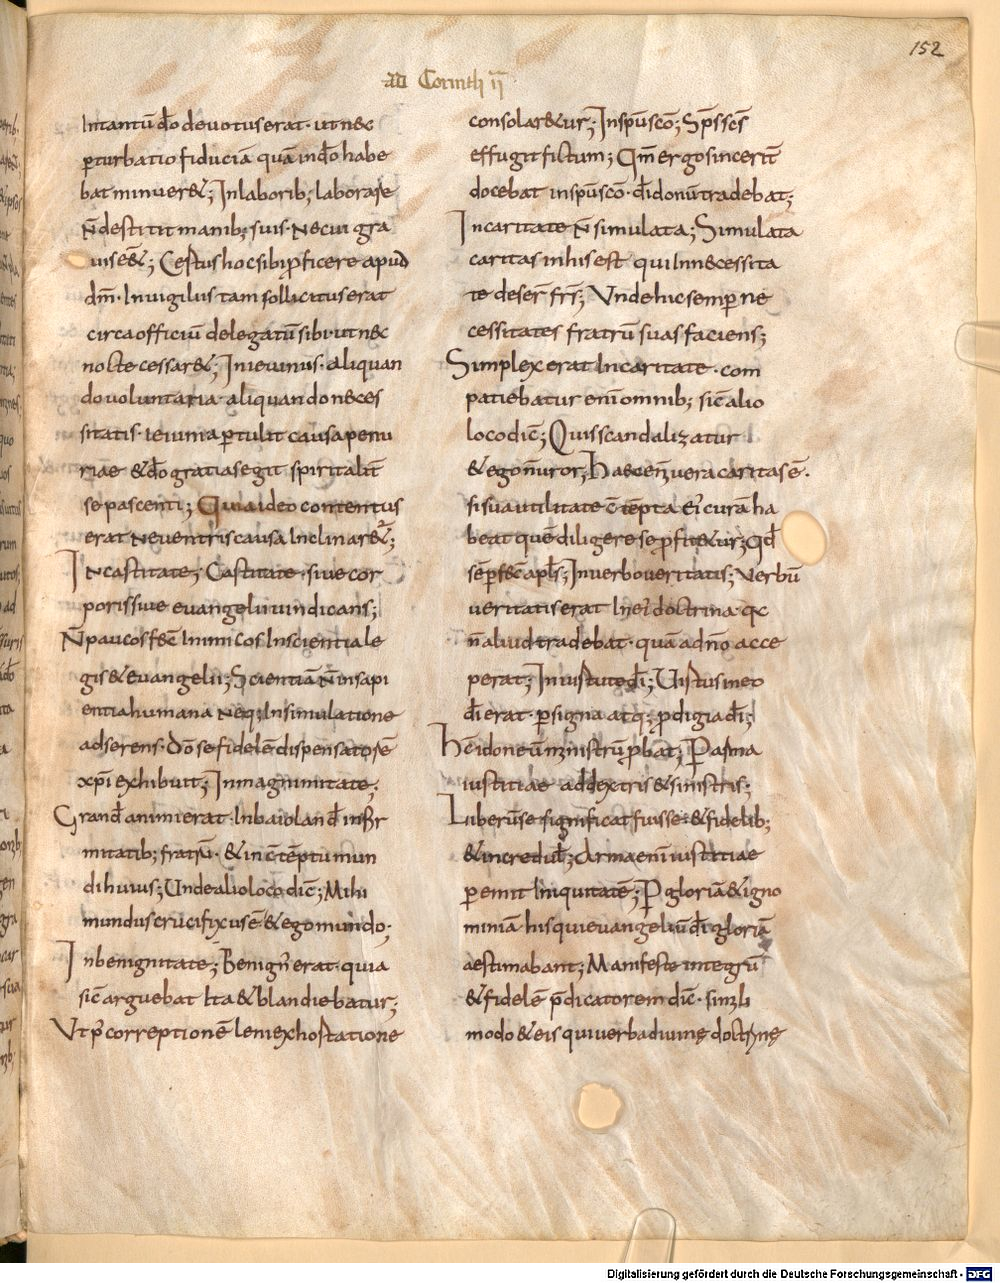 152
ad Corinth ii
Intantū dō deuotus erat· ut nec
perturbatio fiduciā quā in dō habe
bat minuer&; In laborib; laborare
n̄ destitit manib; suis· ne cui gra
uis ēēt; Certus hoc sibi ꝓficere apud
dm̄· In uigiliis tam sollicitus erat
circa officiū delegatū sibi· ut nec
nocte cessar&; In ieiuniis· aliquan
do uoluntaria· aliquando neces
sitatis· ieiunia pertulit causa penu
riae & dō gratias egit spiritalit̄
se pascenti; Quia ideo contentus
erat ne uentris causa inclinar&ur;
In castitate; Castitate· siue cor
poris siue euangelii uindicans;
N̄ paucos fec̄ inimicos In scientia le
gis & euangelii; Scientiā n̄ in sapi
entia humana neq; In simulatione
adserens· dō se fidelē dispensatorē
xp̄i exhibuit; In magnimitate;
Grand̄ animi erat· In baioland̄ infir
mitatib; fratrū· & in c̄tēptu mun
di huius; Unde alio loco dic̄; Mihi
mundus crucifixus ē & ego mundo;
In benignitate; Benign̄ erat· quia
sic̄ arguebat Ita & blandiebatur;
Ut p̄ correptionē lenis exhortatione
consolar&ur; In sp̄u sc̄o; Sp̄s sc̄s
effugit fictum; Qm̄ ergo sincerit̄
docebat in sp̄u sc̄o· dī donū tradebat;
In caritate n̄ simulata; Simulata
caritas in his est qui In necessita
te deser̄ fr̄s; Unde hic semper ne
cessitates fratrū suas faciens;
Simplex erat In caritate· com
patiebatur enī omnib; sic̄ alio
loco dic̄; Quis scandalizatur
& ego n̄ uror; Haec enī uera caritas ē·
si sua utilitate c̄tēpta ei' curā ha
beat quē diligere se ꝓfit&ur; Qd̄
sēp fec̄ apl̄s; In uerbo ueritatis; Uerbū
ueritatis erat In ei' doctrina· qc
n̄ aliud tradebat· quā ad n̄o acce
perat; In uirtute dī; Uirtus in eo
dī erat· per signa atq; ꝓdigia dī;
Hc̄ idoneū ministrū ꝓbat; Per arma
iustitiae a dextris & sinistris;
Liberū se significat fuisse· & fidelib;
& incredul̄; Arma enī iustitiae
peremit Iniquitatē; P gloriā & igno
miniā his qui euangeliū dī gloriā
aestimabant; Manifeste integrū
& fidelē p̄dicatorem dic̄· simɫ
modo & eis qui uerba diuinę doctrinę
Digitalisierung gefördert durch die Deutsche Forschungsgemeinschaft - DFG